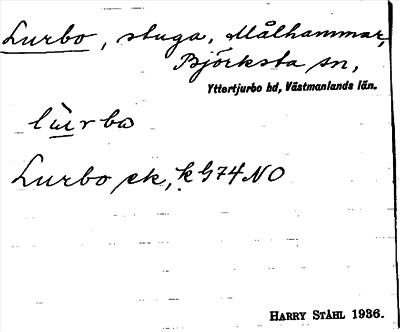 Lurbo, stuga, Målhammar,
Björksta sn,
Yttertjurbo hd, Västmanlands län.
lu̇rbo
Lurbo ek, k G74 NO
HARRY STÅHL 1936.